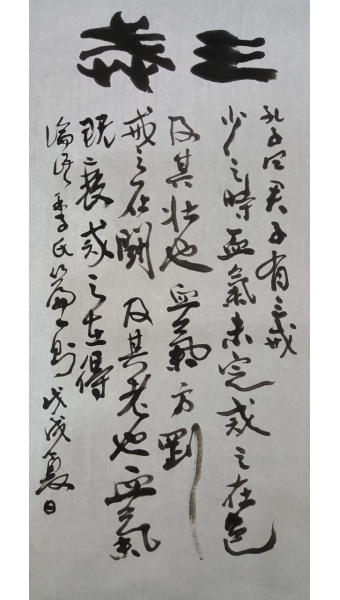 三戒
孔子曰君子有三戒
少之時血氣未定戒之在色
及其壮也血氣方剛
戒之在鬪及其老也血氣
既衰戒之在得
論语季氏篇一则戊戌夏日